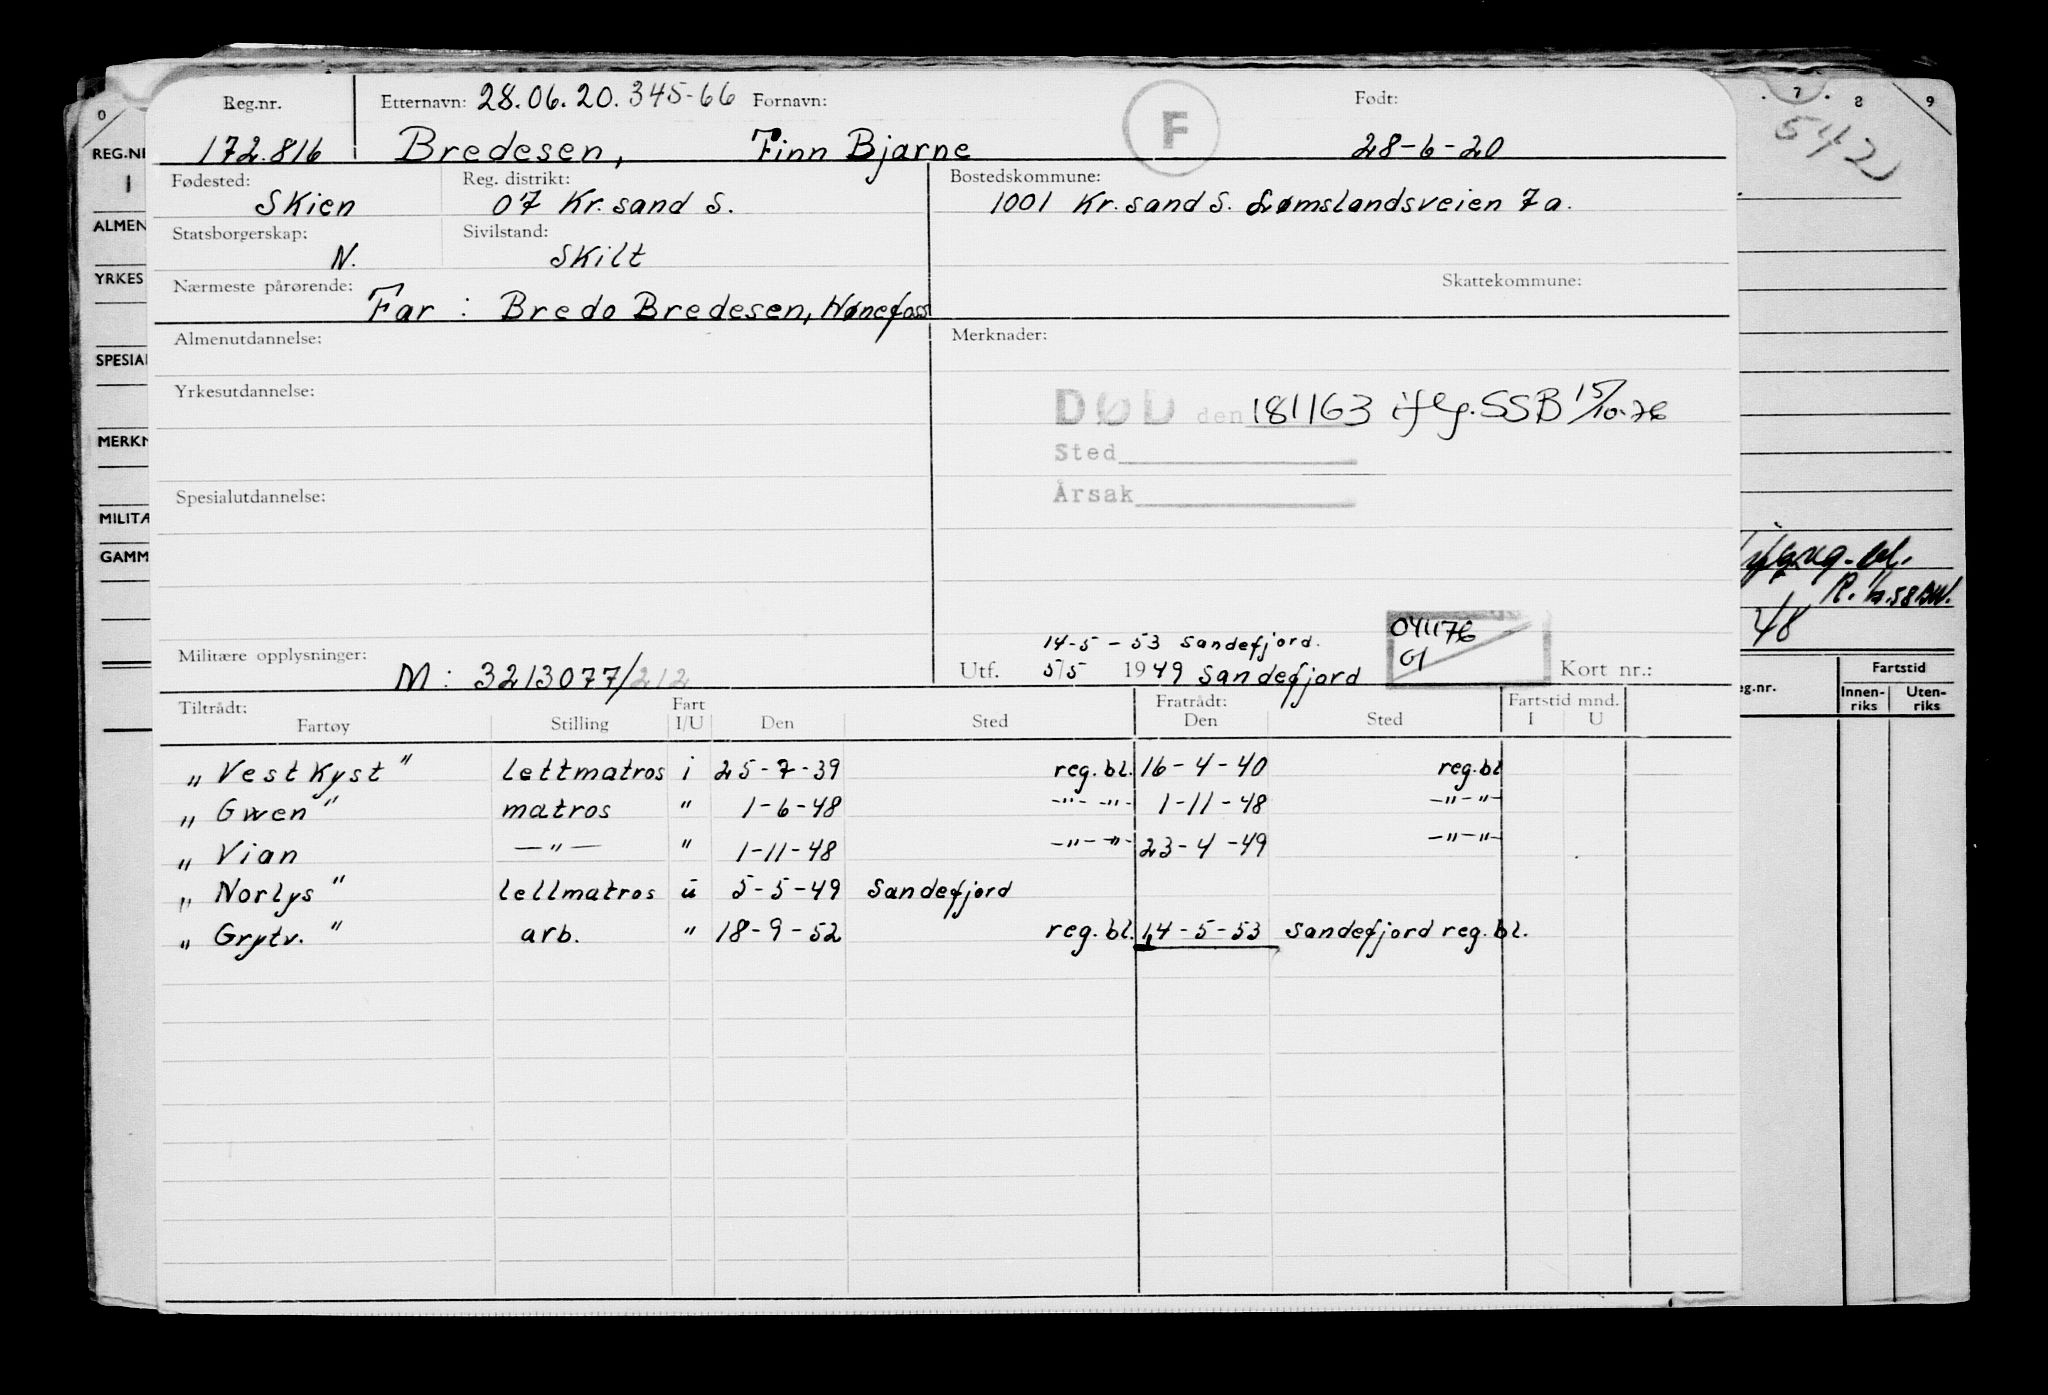 Reg.nr. Etternavn: 28.06.20.345-66 Fornavn: F Født:
172.816 Bredesen, Finn Bjarne 28-6-20
Fødested: Reg. distrikt: Bostedskommune:
Skien 07 Kr.sand S. 1001 Kr.sand S. Lømslandsveien 7a.
Statsborgerskap: Sivilstand:
N. Skilt
Nærmeste pårørende: Skattekommune:
Far : Bredo Bredesen, Hønefoss
Almenutdannelse: Merknader:
Yrkesutdannelse:
DØD den 181163 iflg. SSB 15/10-76
Sted
Årsak
Spesialutdannelse:
14-5-53 Sandefjord.
041176
01
Militære opplysninger: M: 3213077/212 Utf. 5/5 1949 Sandefjord Kort nr.:
Tiltrådt: Fart Fratrådt: Fartstid mnd.
Fartøy Stilling I/U Den Sted Den Sted I U
„Vestkyst" lettmatros i 25-7-39 reg.bl. 16-4-40 reg.bl
„Gwen" matros " 1-6-48 -"- -"- 1-11-48 -"-"-
„Vian —"— " 1-11-48 -"- -"- 23-4-49 -"-"-
„Norlys" lellmatros u 5-5-49 Sandefjord
„Grytv." arb. " 18-9-52 reg.bl. 14-5-53 Sandefjord reg.bl.
0
REG.NR
1
ALMEN
YRKES
SPESIAL
MERKN
MILITÆ
GAMM
7 8 9
542
48
eg.nr. Fartstid
Innen-riks Uten-riks